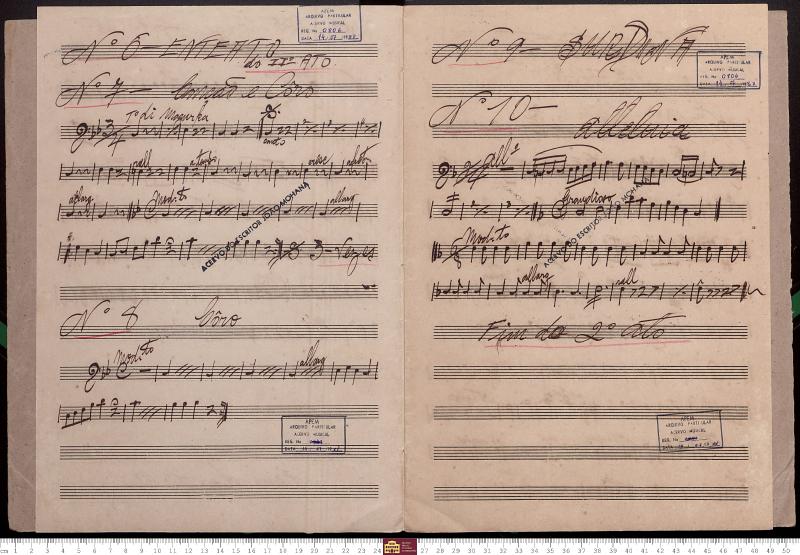 APEM
ARQUIVO PARTICULAR
ACERVO MUSICAL
REG. No 0806
Nº 6 - ENTEATO
do IIº ATO
Nº 7 - Canção e Côro
Tº di Mazurka
3/4
rall
allarg
Modtº
allarg
3 - Vezes
ACERVO DO ESCRITOR JOÃO MOHANA
Nº 8 Côro
Modtº
allarg
APEM
ARQUIVO PARTICULAR
ACERVO MUSICAL
REG. No
DATA
Nº 9 - SURDINA
APEM
ARQUIVO PARTICULAR
ACERVO MUSICAL
REG. No 0806
Nº 10 -
Alleluia
Allº
Grandioso
ACERVO DO ESCRITOR JOÃO MOHANA
Modtº
allarg
rall
Fim do 2º Ato
APEM
ARQUIVO PARTICULAR
ACERVO MUSICAL
REG. No
DATA
cm 1 2 3 4 5 6 7 8 9 10 11 12 13 14 15 16 17 18 19 20 21 22 23 24 27 28 29 30 31 32 33 34 35 36 37 38 39 40 41 42 43 44 45 46 47 48 49 50